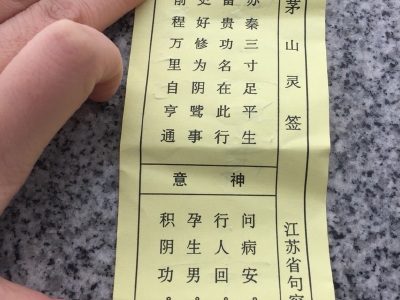 茅山灵签
江苏省句容
苏秦三寸足平生
富贵功名在此行
更好修为阴鹭事
前程万里自亨通
神意
问病安。
行人回。
孕生男。
积阴功。